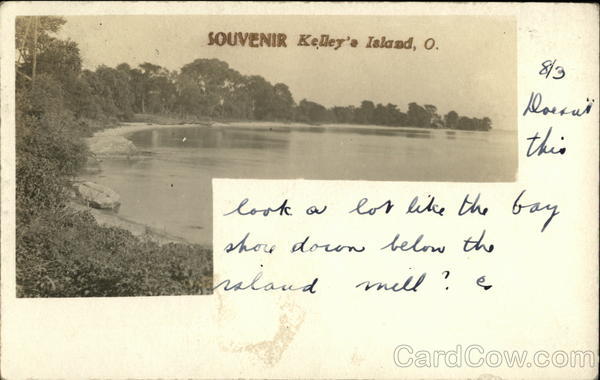 SOUVENIR Kelley's Island, O.
8/3
Doesn't
this
look a lot like the bay
shore down below the
island mill?
CardCow.com